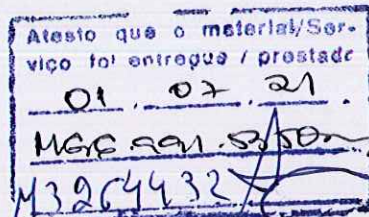 Atesto que o material/Ser-
viço foi entregue / prestado
01 . 07 . 21 .
M3264432